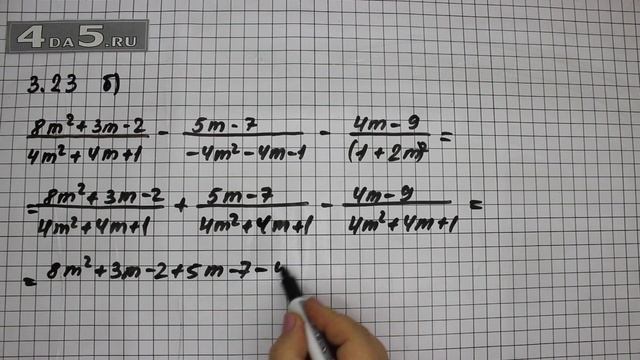 4DA5.RU
3.23 б)
(8m²+3m-2)/(4m²+4m+1) - (5m-7)/(-4m²-4m-1) - (4m-9)/(1+2m)² =
= (8m²+3m-2)/(4m²+4m+1) + (5m-7)/(4m²+4m+1) - (4m-9)/(4m²+4m+1) =
= 8m²+3m-2+5m-7-4